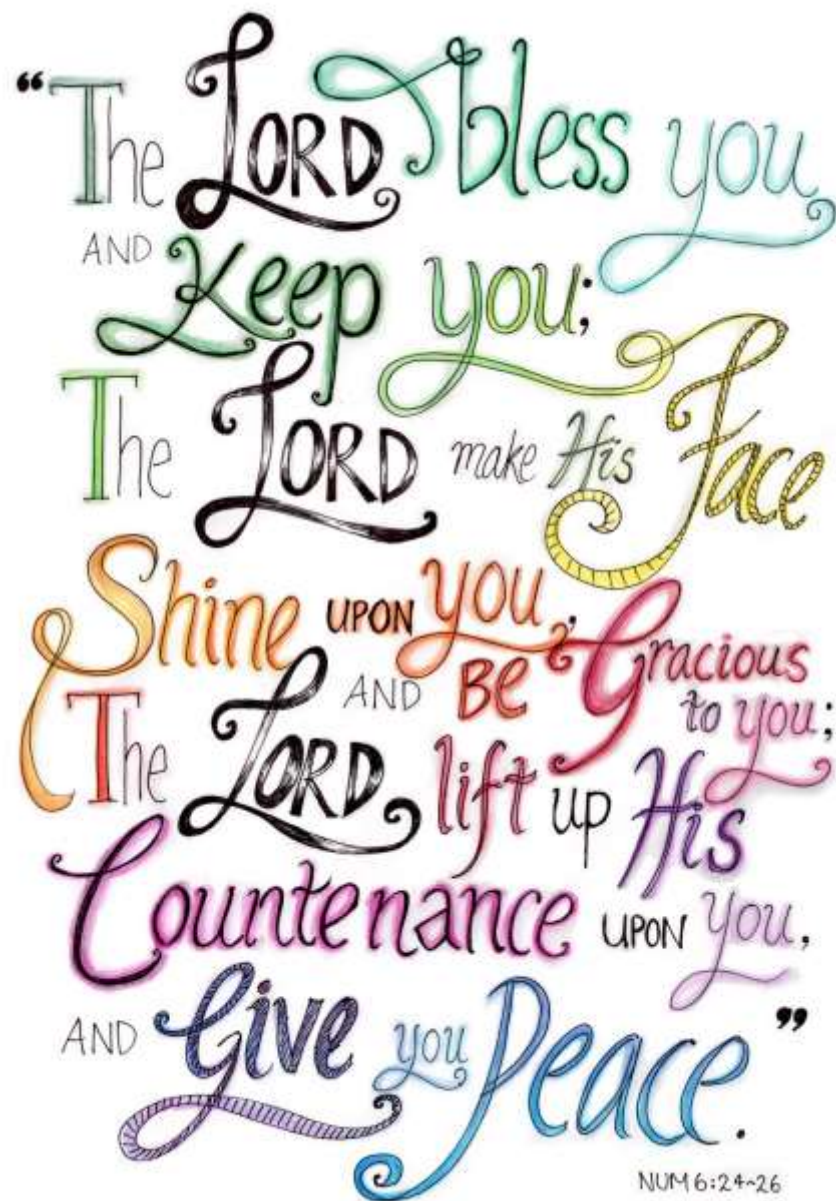 “The LORD bless you
AND Keep you;
The LORD make His Face
Shine UPON you,
AND BE Gracious
to you;
The LORD lift up His
Countenance UPON you,
AND Give you Peace.”
NUM 6:24~26